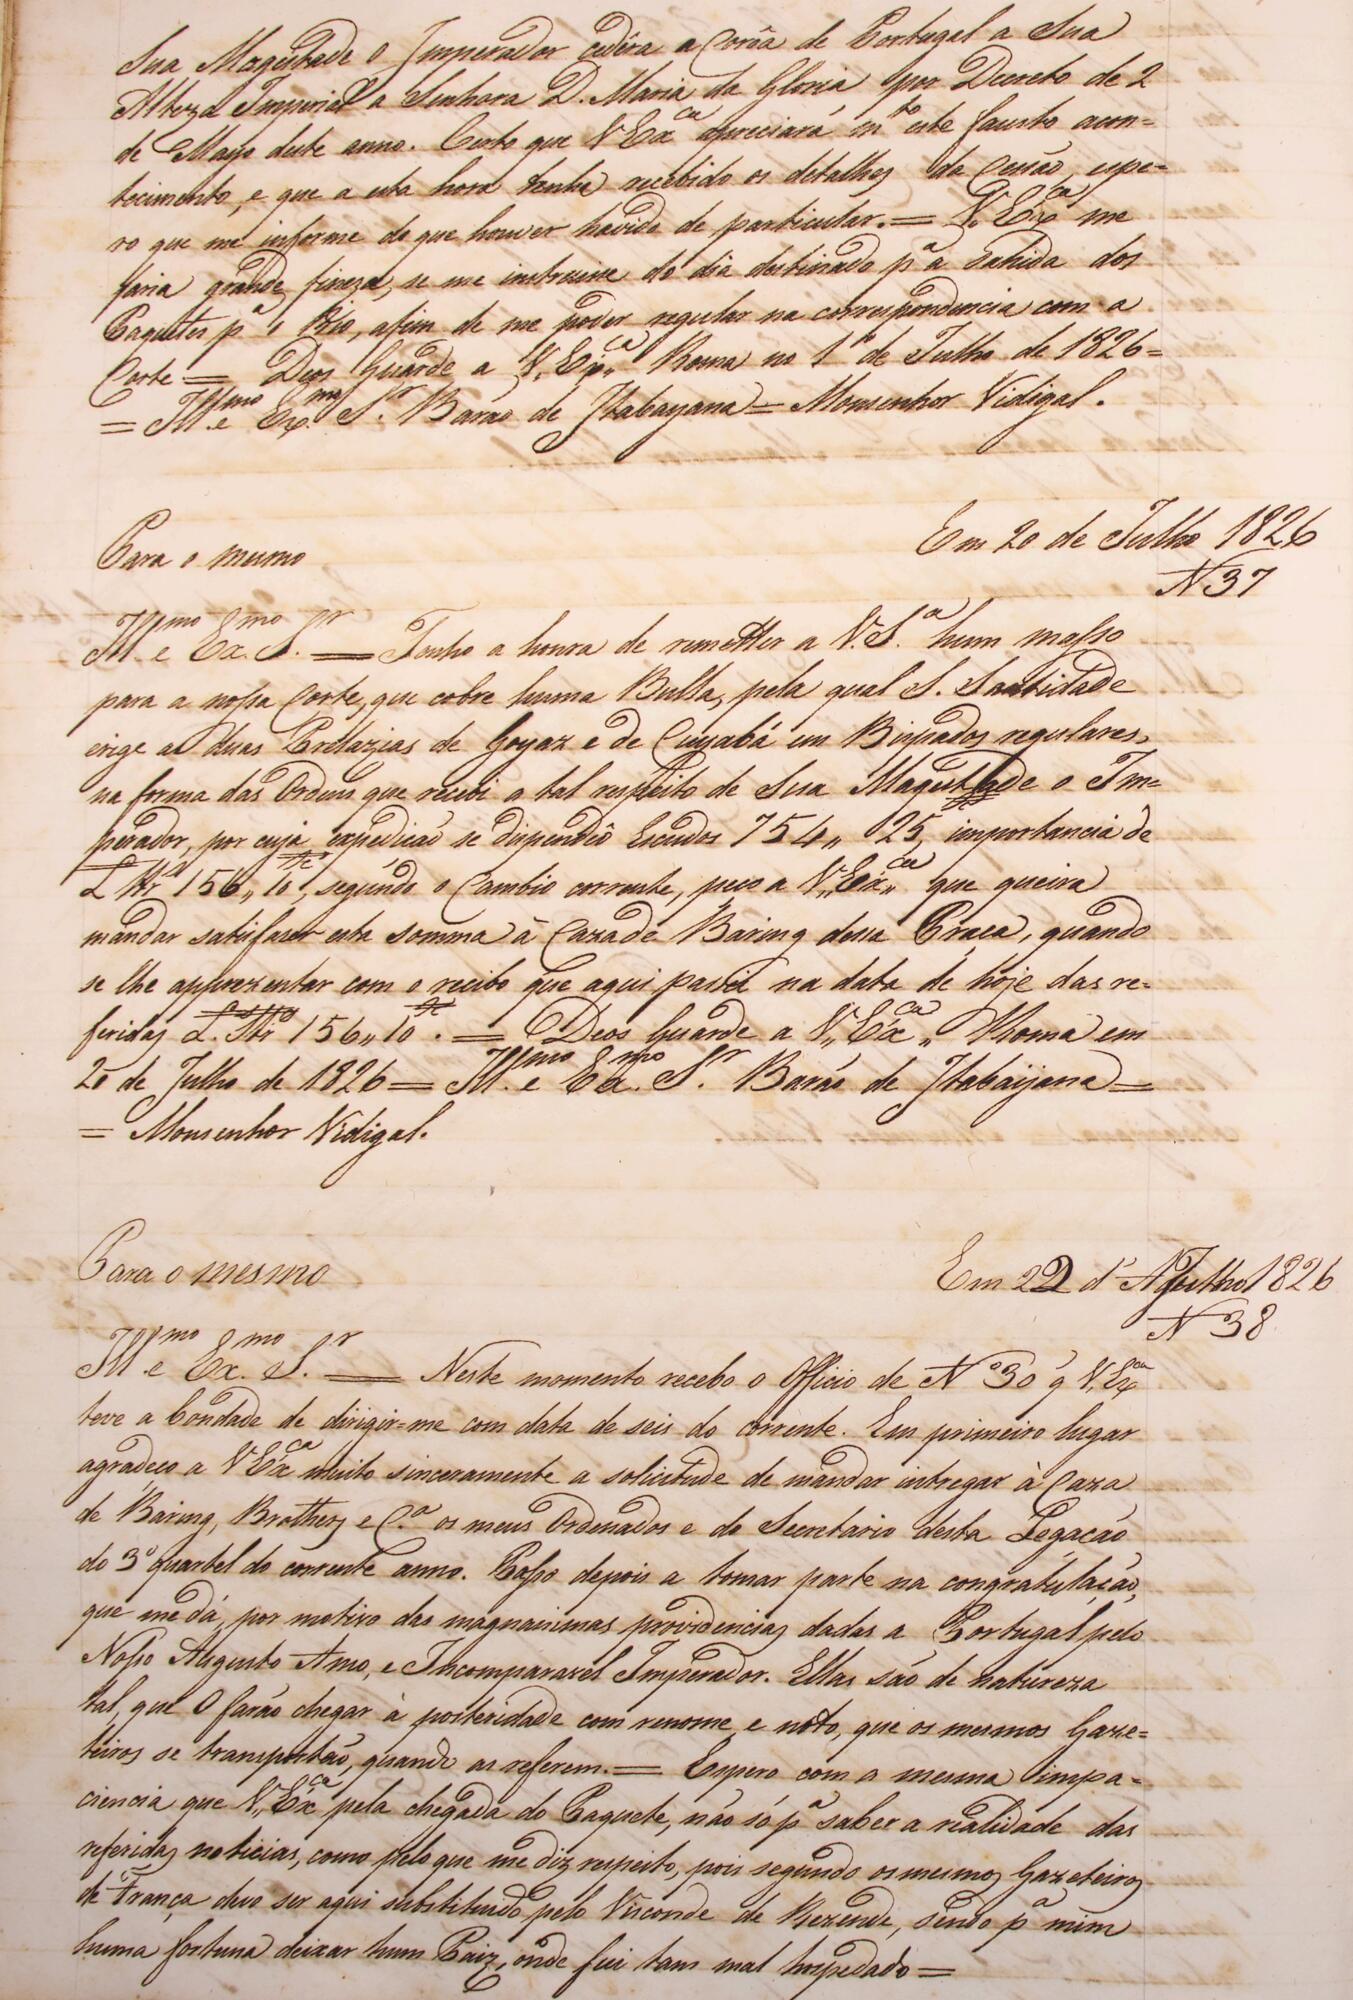 Sua Magestade o Imperador cedêra a Corôa de Portugal a Sua
Alteza Imperial a Senhora D. Maria da Gloria por Decreto de 2
de Mayo deste anno. Certo que V Exca apreciará mto este fausto acon=
tecimento, e que a esta hora tenha recebido os detalhes da Cessão, espe=
ro que me informe do que houver havido de particular. = V. Exca me
faria grande fineza, se me instruisse do dia destinado pa a Sahida dos
Paquetes pa o Rio, afim de me poder regular na correspondencia com a
Corte = Deos Guarde a V. Exca Roma no 1o de Julho de 1826 =
= Illmo e Exmo Sr Barão de Itabayana = Monsenhor Vidigal.
Para o mesmo
Em 20 de Julho 1826
N 37
Illmo e Exmo Sr = Tenho a honra de remetter a V. Sa hum masso
para a nossa Corte, que cobre huma Bulla, pela qual S. Santidade
erige as duas Prelazias de Goyaz e de Cuyabá em Bispados regulares,
na forma das Ordens que recebi a tal respeito de Sua Magestade o Im=
perador, por cuja expedicão se dispendeo Escudos 754,, 25, importancia de
L Stra 156,, 10, segundo o Cambio corrente, peço a V,, Exca,, que queira
mandar satisfaser esta somma à Caza de Baring dessa Praça, quando
se lhe apprezentar com o recibo que aqui passei na data de hoje das re=
feridas L. Stra 156,, 10. = Deos Guarde a V,, Exca,, Roma em
20 de Julho de 1826 = Illmo e Exmo Sr Barão de Itabaijana =
= Monsenhor Vidigal.
Para o mesmo
Em 22 d'Agulho 1826
N 38
Illmo e Exmo Sr = Neste momento recebo o Officio de No 30 q V. Exca
teve a bondade de dirigir=me com data de seis do corrente. Em primeiro lugar
agradeço a V Exca muito sinceramente a solicitude de mandar intregar à Caza
de Baring, Brothers e Ca os meus Ordenados e do Secretario desta Legacão
do 3o quartel do corrente anno. Passo depois a tomar parte na congratulação,
que me dá, por motivo das magnanimas providencias dadas a Portugal pelo
Nosso Augusto Amo, e Incomparavel Imperador. Ellas são de natureza
tal, que O farão chegar à posteridade com renome, e noto, que os mesmos Gaze=
teiros se transportão, quando as referem. = Espero com a mesma impa=
ciencia que V,, Exca pela chegada do Paquete, não só pa saber a realidade das
referidas noticias, como pelo que me diz respeito, pois segundo os mesmos Gazeteiros
de França devo ser aqui substituido pelo Visconde de Rezende, sendo pa mim
huma fortuna deixar hum Paiz, onde fui tam mal hospedado =